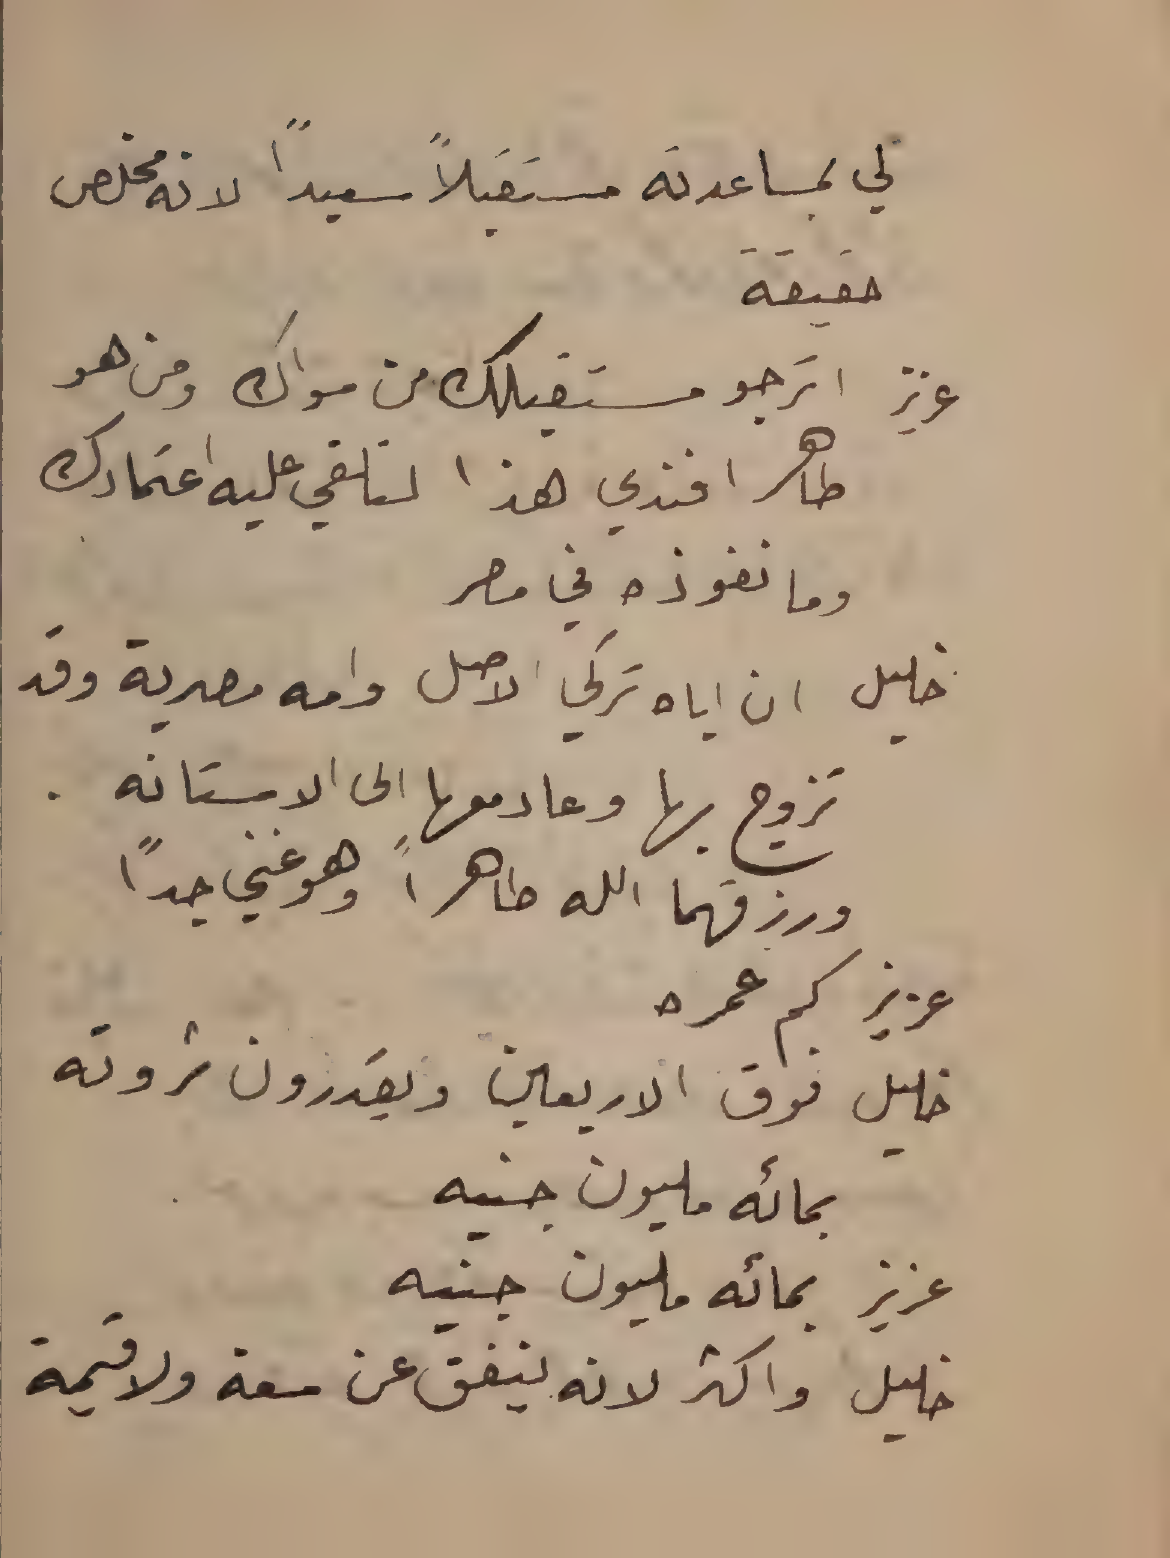 لي بمساعدته مستقبلاً سعيداً لانه مخلص
حقيقة
عزيز اترجو مستقبلك من سواك ومن هو
طاهر افندي هذا لتلقي عليه اعتمادك
وما نفوذه في مصر
خليل ان اباه تركي الاصل وامه مصرية وقد
تزوج بها وعاد معها الى الاستانه .
ورزقهما الله طاهراً وهو غني جداً
عزيز كم عمره
خليل فوق الاربعين ويقدرون ثروته
بمائه مليون جنيه
عزيز بمائه مليون جنيه
خليل واكثر لانه ينفق عن سعة ولا قيمة